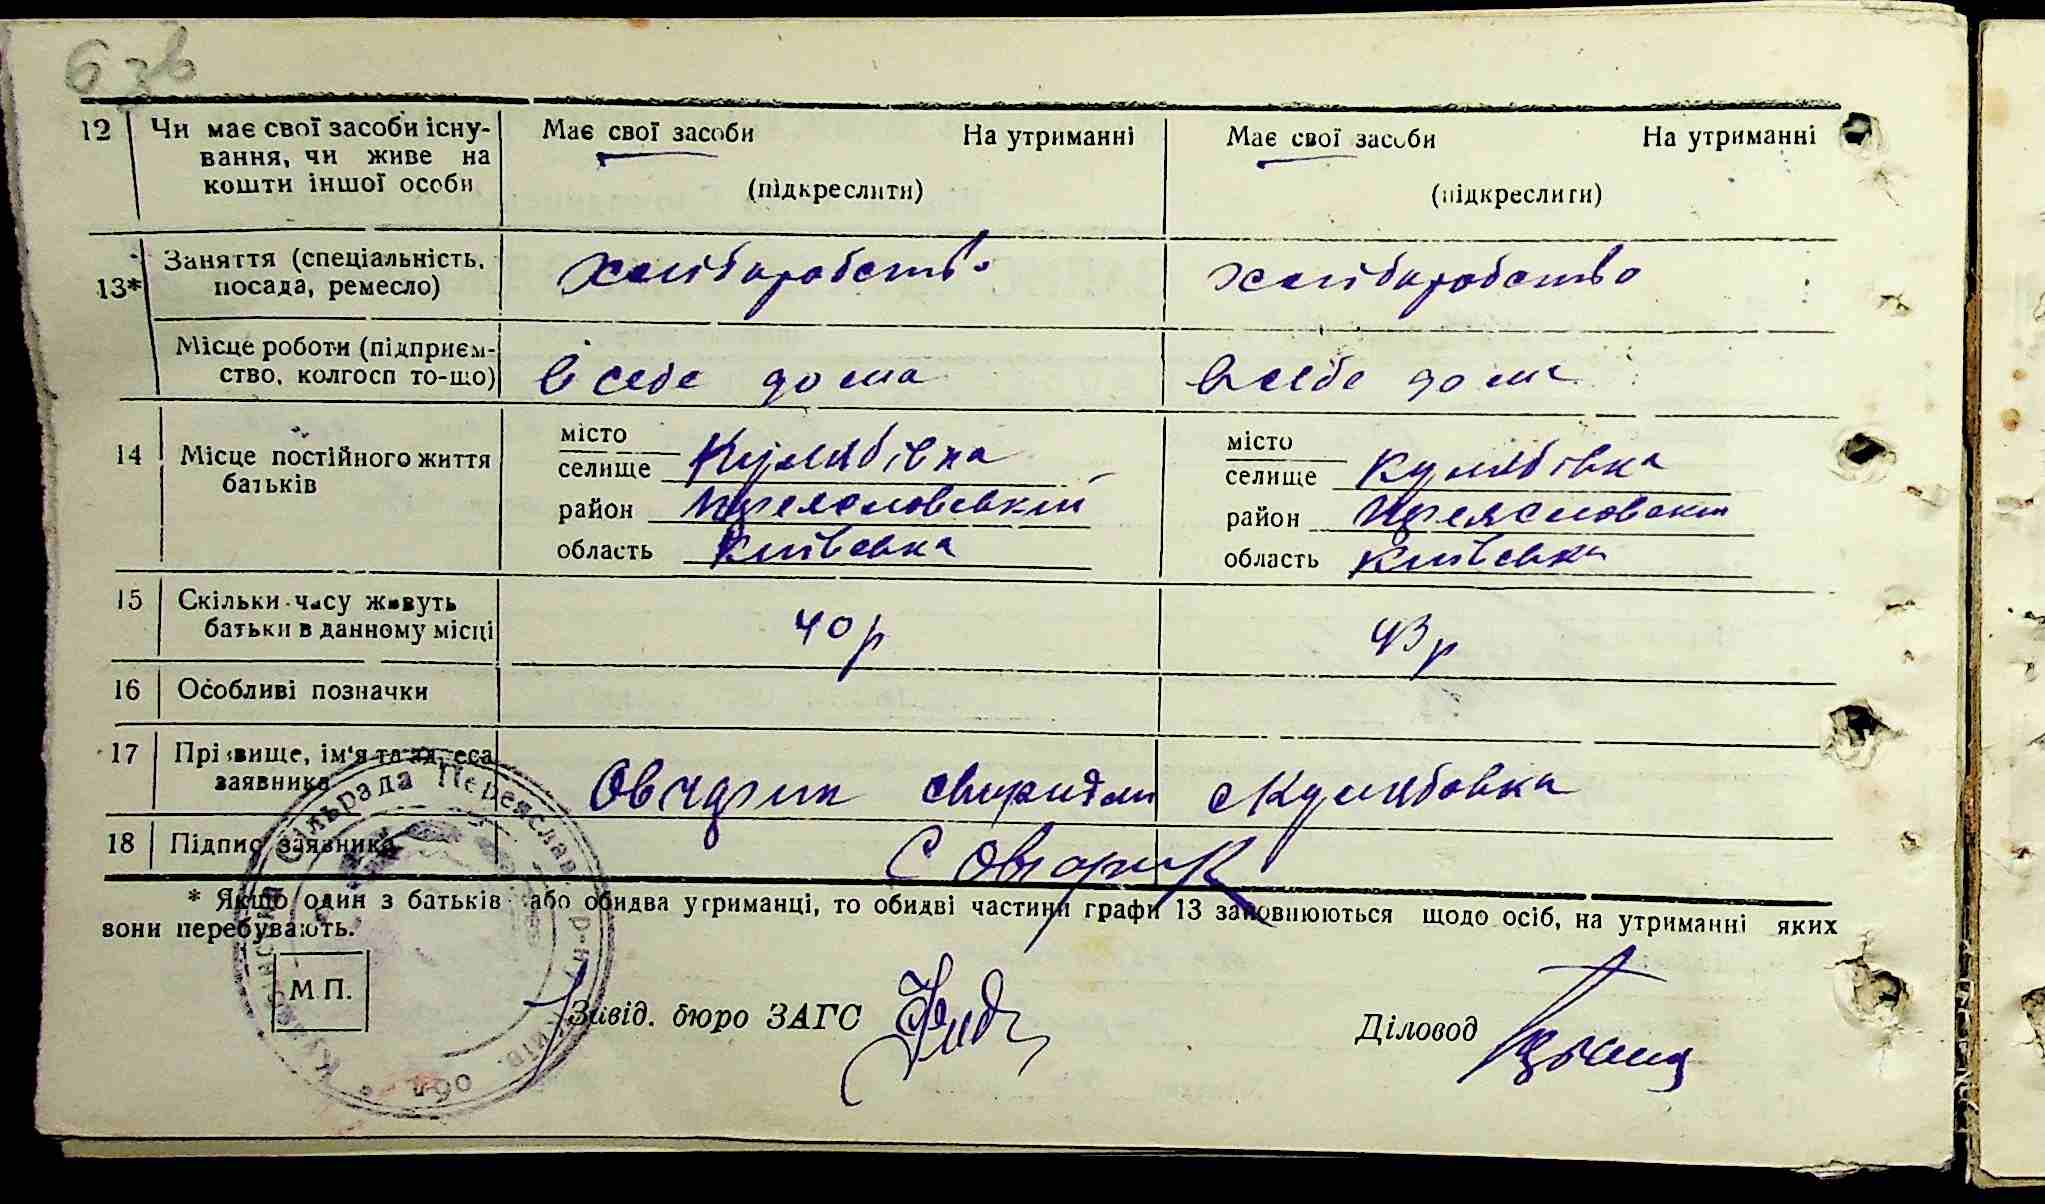 6 зв
12 Чи має свої засоби існу-
вання, чи живе на
кошти іншої особи
Має свої засоби На утриманні
(підкреслити)
Має свої засоби На утриманні
(підкреслити)
13* Заняття (спеціальність,
посада, ремесло)
хліборобство
хліборобство
Місце роботи (підприєм-
ство, колгосп то-що)
в себе дома
в себе дома
14 Місце постійного життя
батьків
місто
селище Кулябівка
район Переясловський
область Київська
місто
селище Кулябівка
район Переясловский
область Київська
15 Скільки часу живуть
батьки в данному місці
40 р
43 р
16 Особливі позначки
17 Прізвище, ім'я та адреса
заявника
Овчарик с Кулябовка
18 Підпис заявника
С Овчарик
* Якщо один з батьків або обидва утриманці, то обидві частини графи 13 заповнюються щодо осіб, на утриманні яких
вони перебувають.
М.П.
Завід. бюро ЗАГС
Діловод
Сільрада Переяслав. р-ну Київ. обл.